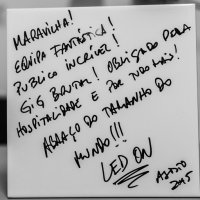 MARAVILHA!
EQUIPA FANTÁSTICA!
PUBLICO INCRÍVEL!
GIG BRUTAL! OBRIGADO PELA
HOSPITALIDADE E POR TUDO MAIS!
ABRAÇO DO TAMANHO DO
MUNDO!!!
LED ON
AGOSTO
2015